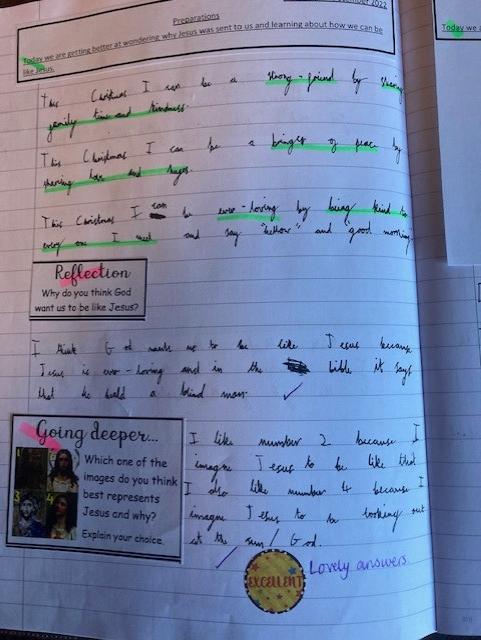 2022
Preparations
Today we are getting better at wondering why Jesus was sent to us and learning about how we can be
like Jesus.
Today we a
This Christmas I can be a strong-friend by sharing
family time and kindness.
This Christmas I can be a bringer of peace by
sharing love and hugs.
This Christmas I can be ever-loving by being kind to
every one I meet and say "hellow" and "good morning
Reflection
Why do you think God
want us to be like Jesus?
I think God wants us to be like Jesus because
Jesus is ever-loving and in the bible it says
that he held a blind man.
Going deeper...
Which one of the
images do you think
best represents
Jesus and why?
Explain your choice.
I like number 2 because I
imagine Jesus to be like that
I also like number 4 because I
imagine Jesus to be looking out
at the sun / God.
EXCELLENT
Lovely answers.